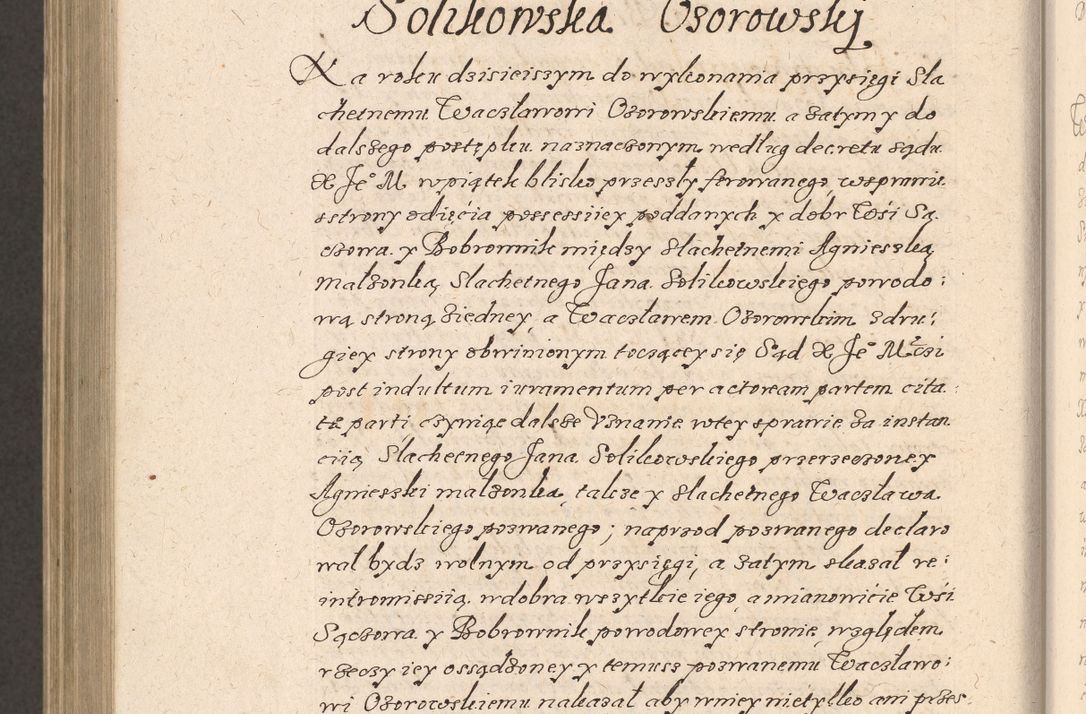 Solikowska Ozorowskj
Na roku dzisieiszym do wykonania przysięgi Sla
chetnemu Waczławowi Ozorowskiemu a zatym y do
dalszego postępku naznaczonym według decretu sądu
X Je° M wpiątek blisko przeszły ferowanego, wsprawie
zstrony odięcia possessiiey poddanych y dobr Wśi Są
czowa y Bobrownik między Slachetnemi Agnieszką
małżonką Slachetnego Jana Solikowskiego powodo:
wą stroną ziedney, a Waczławem Ozorowskim zdru:
giey strony obwinionym toczącey się Sąd X Je° Mści
post indultum iuramentum per actoream partem cita:
tæ parti, czyniąc dalsze Vznanie wtey sprawie za instan
ciią Slachecnego Jana Solikowskiego przerzeczoney
Agnieszki małżonka, także y slachetnego Wacława
Ozorowskiego pozwanego; naprzod pozwanego declaro
wał bydz wolnym od przysięgi, a zatym skazał re:
intromissiią wdobra wszytkie iego, a mianowicie Wśi
Sączowa y Bobrownik powodowey stronie względem
rzeczy iey ossądzoney y temusz pozwanemu Wacsławo:
wi Ozorowskiemu nakazał aby wniey nietylko ani przes